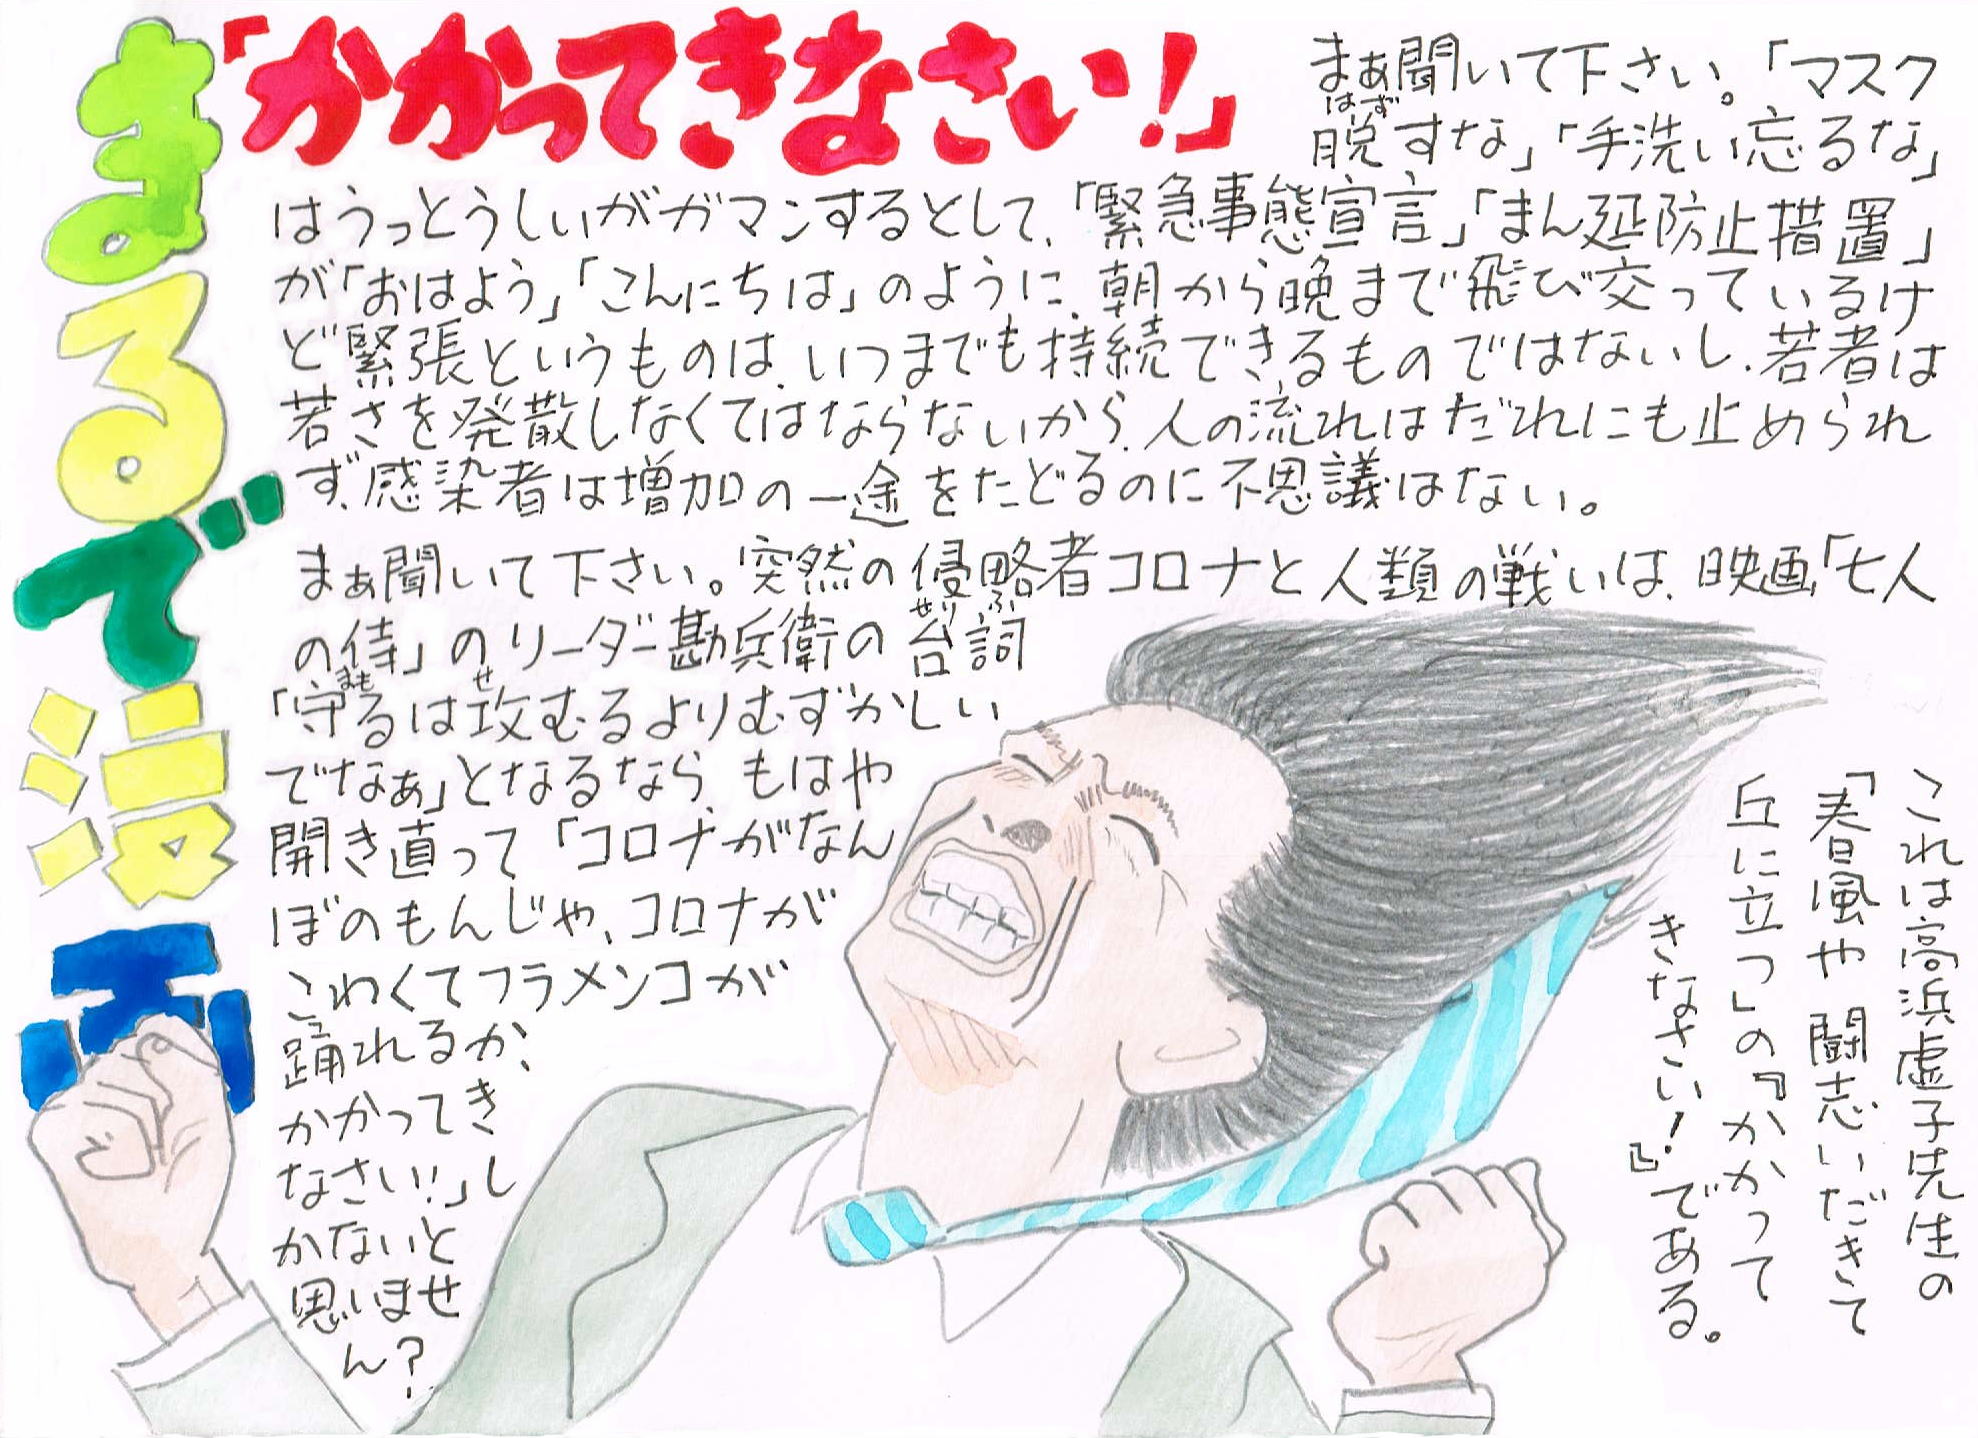 まるで漫画
「かかってきなさい!」
まぁ聞いて下さい。「マスク
脱すな」「手洗い忘るな」
はず
はうっとうしいがガマンするとして、「緊急事態宣言」「まん延防止措置」
が「おはよう」「こんにちは」のように、朝から晩まで飛び交っているけ
ど緊張というものは、いつまでも持続できるものではないし、若者は
若さを発散しなくてはならないから、人の流れはだれにも止められ
ず、感染者は増加の一途をたどるのに不思議はない。
まぁ聞いて下さい。突然の侵略者コロナと人類の戦いは、映画「七人
の侍」のリーダー勘兵衛の台詞
せりふ
「守るは攻むるよりむずかしい
まも
せ
でなぁ」となるなら、もはや
開き直って「コロナがなん
ぼのもんじゃ、コロナが
こわくてフラメンコが
踊れるか、
かかってき
なさい!」し
かないと
思いませ
ん?
これは高浜虚子先生の
「春風や闘志いだきて
丘に立つ」の『かかって
きなさい!』である。